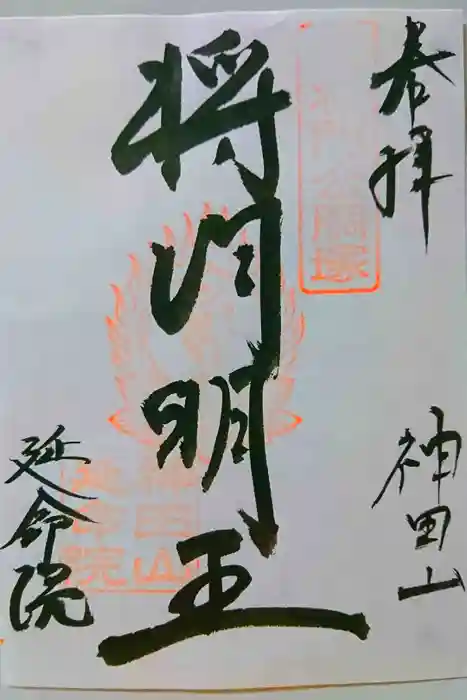 奉拝
神田山
将門明王
延命院
神田山
延命院